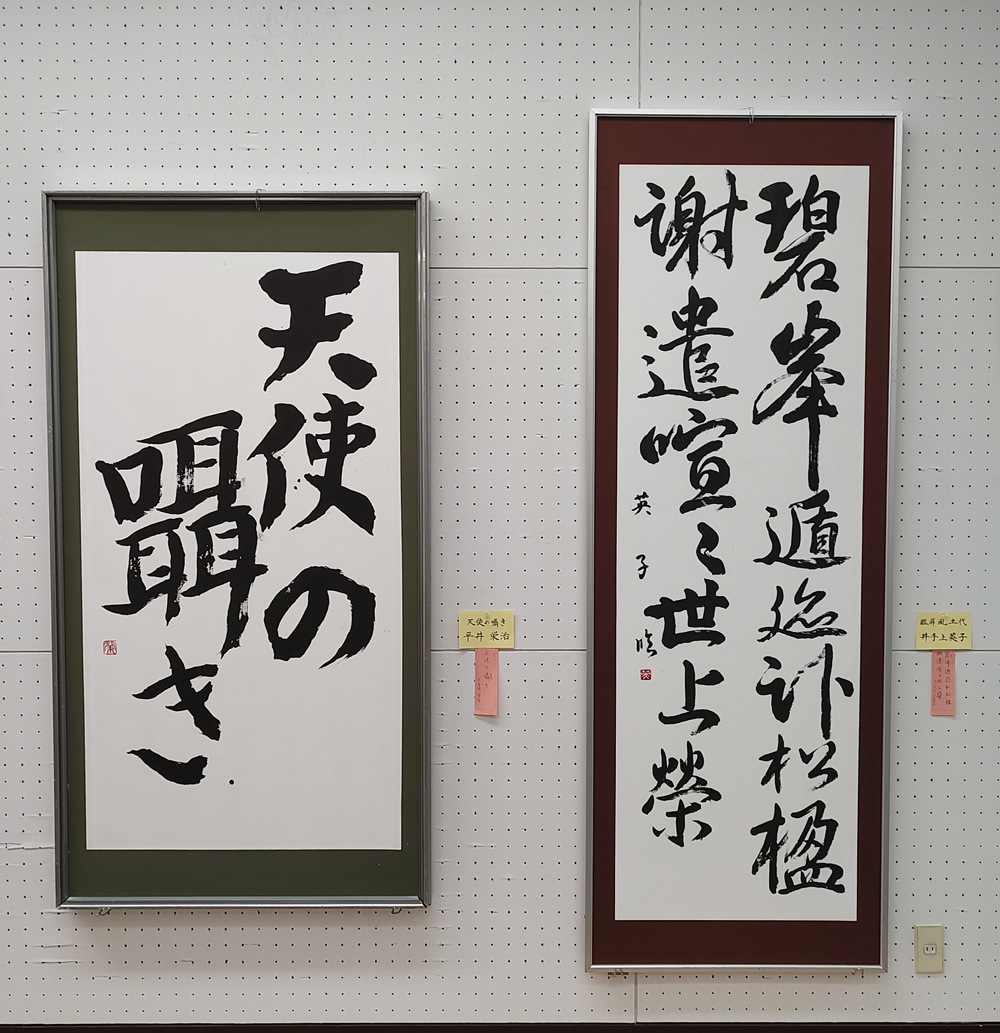 碧峯遁迹卧松楹
謝遣喧〻世上榮
英子臨
臨屏風土代
井手上英子
天使の
囁き
天使の囁き
平井栄治